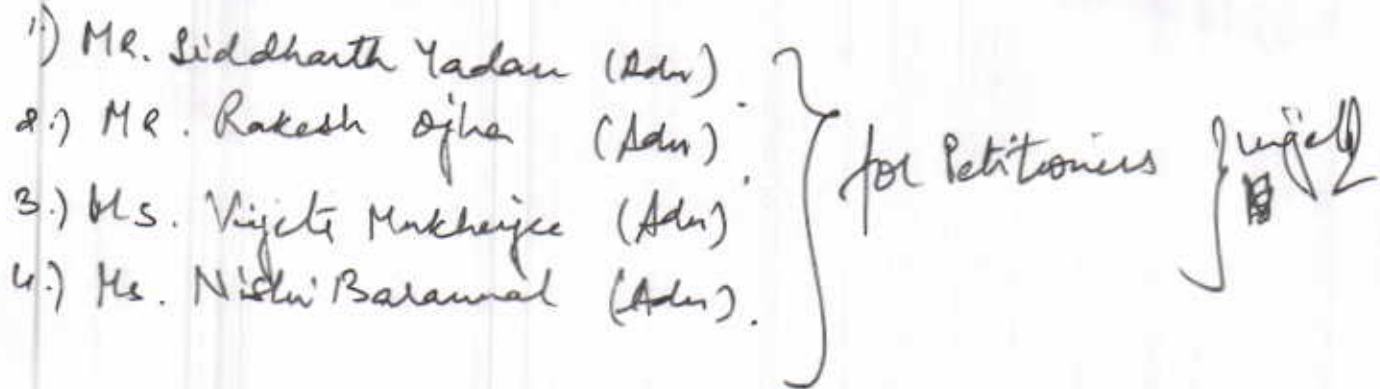 1.) MR. Siddharth Yadav (Adv).
2.) MR. Rakesh Ojha (Adv).
3.) Ms. Vijeta Mukherjee (Adv)
4.) Ms. Nishi Baranwal (Adv).
for Petitioners